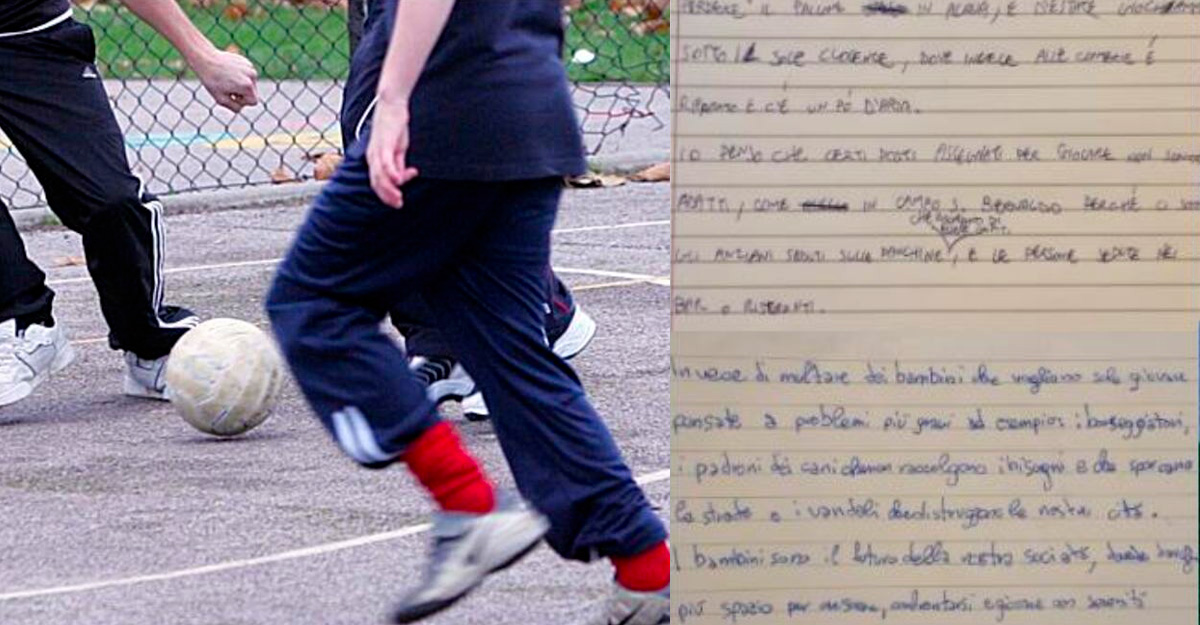 PERDERE IL PALLONE IN ACQUA, E D'ESTATE GIOCHIAMO
SOTTO IL SOLE CUOCENTE, DOVE INVECE ALLE COMBATE È
RIPARATO E C'È UN PÒ D'ARIA.
IO PENSO CHE CERTI POSTI ASSEGNATI PER GIOCARE NON SONO
ADATTI, COME IN CAMPO S. BERNARDO PERCHÉ CI SONO
GLI ANZIANI SEDUTI SULLE PANCHINE, E LE PERSONE SEDUTE NEI
BAR O RISTORANTI.
In vece di multare dei bambini che vogliono solo giocare
pensate a problemi più gravi ad esempio: i borseggiatori,
i padroni dei cani che non raccolgono i bisogni e che sporcano
le strade o i vandali che distruggono le nostre città.
I bambini sono il futuro della nostra società, dategli
più spazio per crescere, confrontarsi e giocare con serenità